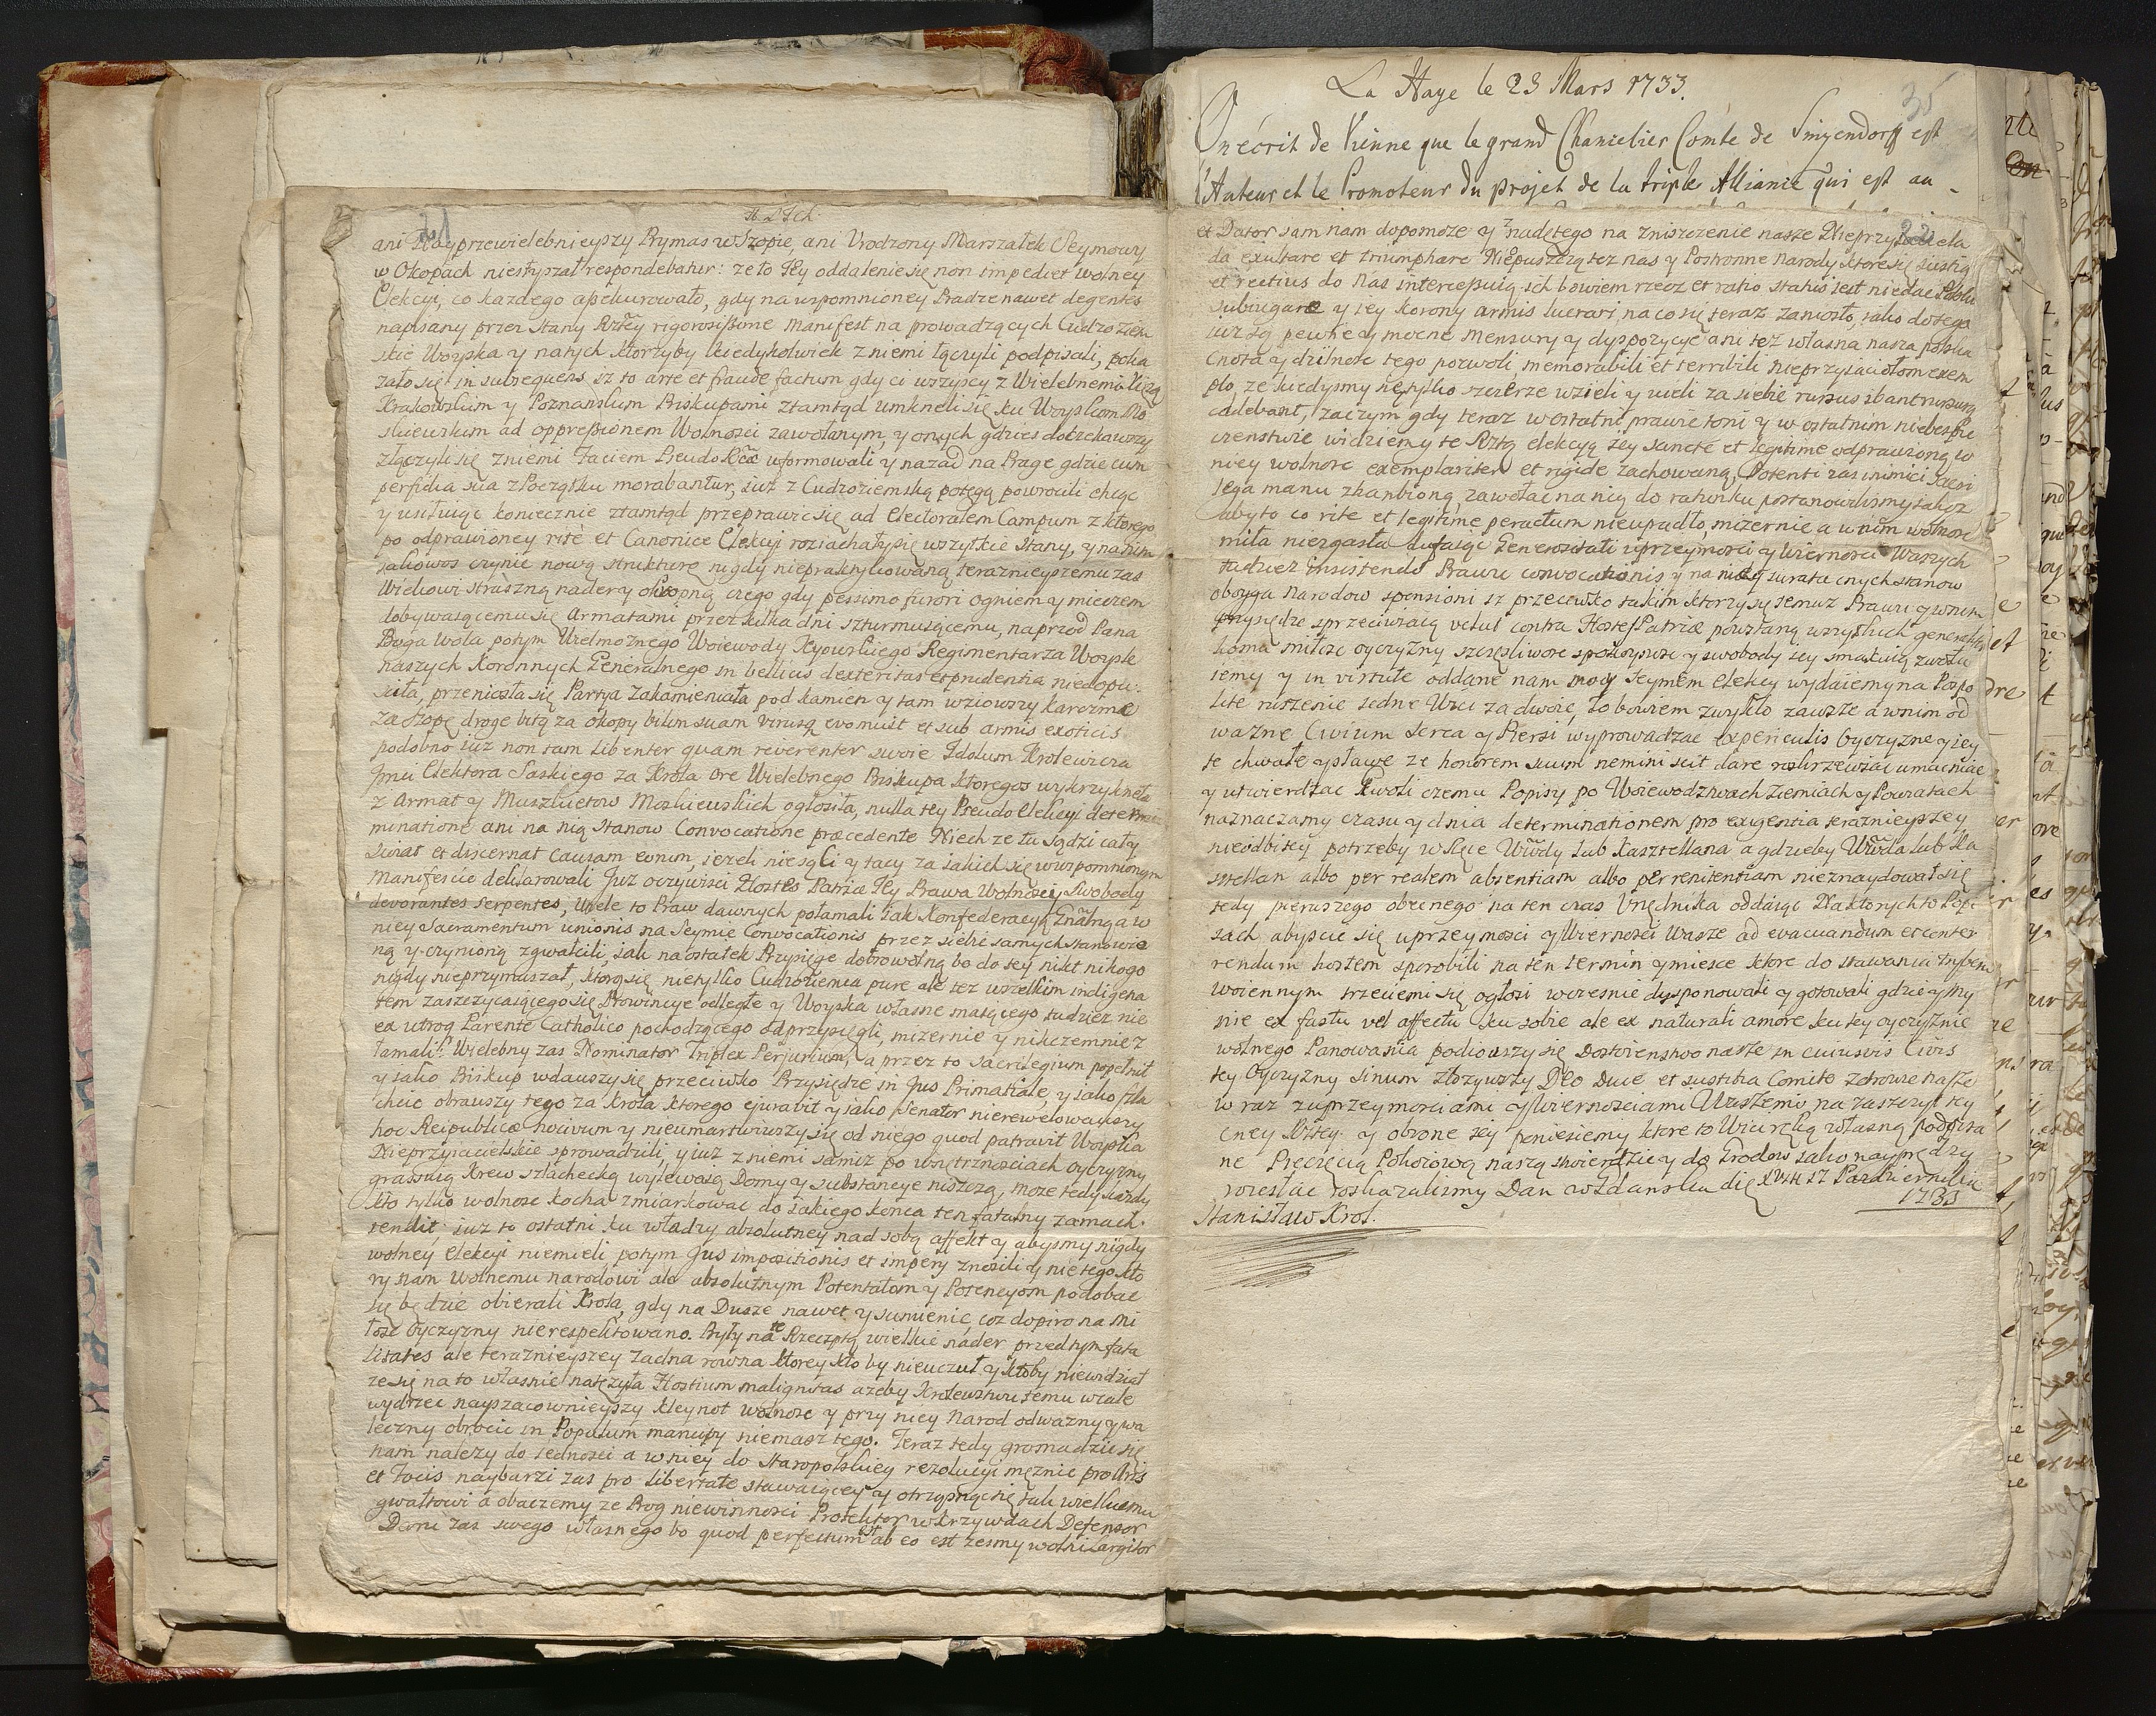 ani Nayprzewielebnieyszy Prymas w Szopie, ani Urodzony Marszałek Seymowy
w Okopach niesłyszał respondebatur: ze to Jey oddalenie się non impediet wolney
Elekcyi, co kazdego assekurowało, gdy na wspomnioney Pradze nawet degentes
napisany przez Stany Rzłey rigorosissime Manifest na prowadzących Cudzoziem
skie Woyska y na tych ktorzyby kiedykolwiek z niemi łączyli podpisali, poka
zało się in subsequens iz to arte et fraude factum gdy ci wszyscy z Wielebnemi
Krakowskim y Poznanskim Biskupami ztamtąd umkneli się ku Woyskom Mo
skiewskim ad oppressionem Wolnosci zawołanym, y onych gdzies doczekawszy
złączyli się z niemi faciem Pseudo uformowali y nazad na Prage gdzie cum
perfidia sua z Początku morabantur, iuz z Cudzoziemską potęgą powrocili chcąc
y usiłuiąc koniecznie ztamtąd przeprawic się ad Electoralem Campum z ktorego
po odprawioney ritè et Canonice Elekcyi roziachały się wszytkie Stany, y na nim
iakowos czynic nową strukturę nigdy niepraktykowaną teraznieyszemu zas
Wiekowi straszną nader y okropną czego gdy pessimo furori ogniem y mieczem
dobywaiącemu się Armatami przez kilka dni szturmuiącemu, naprzod Pana
Boga wola potym Wielmoznego Woiewody Kyowskiego Regimentarza Woysk
naszych Koronnych Generalnego in bellicis dexteritas et prudentia niedopu
sciła, przeniosła się Partya zakamieniała pod Kamien y tam wziowszy Karczmę
za szopę drogę bitą za okopy bilem suam virusq evomuit et sub armis exoticis
podobno iuz non tam libenter quam reverenter swoie Idolum Krolewicza
Jmci Elektora Saskiego za Krola ore Wielebnego Biskupa ktoregos wykrzyknęła
z Armat y Muszkietow Moskiewskich ogłosiła, nulla tey Pseudo Elekcyi deter
minatione ani na nią Stanow Convocatione præcedente Niech ze tu sądzi cały
Swiat et discernat Causam eorum, iezeli niesą Ci y tacy za iakich się w wspomnionym
Manifescie deklarowali Juz oczywisci Hostes Patriæ Jey Prawa Wolnosci y Swobody
devorantes serpentes, Wiele to Praw dawnych połamali iak Konfederacyą w
niey Sacramentum unionis na Seymie Convocationis przez siebie samych stanowio
ną y czynioną zgwałcili, iak na ostatek Przysięge dobrowolną bo do tey nikt nikogo
nigdy nieprzymuszał, ktorą się nietylko Cudzoziemca pure ale tez wszelkim indigena
tem zaszczycaiącego się Prowincye odległe y Woyska własne maiącego tudziez nie
ex utroq Parente Catholico pochodzącego odprzysięgli, mizernie y nikczemnie z
łamali: Wielebny zas Nominator Triplex Perjurium, a przez to sacrilegium popełnił
y iako Biskup wdawszy się przeciwko Przysiędze in Jus Primatiale, y iako Szla
chcic obrawszy tego za Krola ktorego ejuravit y iako Senator nierewelowawszy
hoc Reipublicæ nocivum y nieumartwiwszy się od niego quod patravit Woyska
Nieprzyiacielskie sprowadzili, y iuz z niemi samiz po wnętrznosciach oyczyzny
grassuią Krew szlachecką wylewaią Domy y substancye niszczą, moze tedy kazdy
kto tylko wolnosc kocha zmiarkowac do iakiego konca ten fatalny zamach
tendit, iuz to ostatni ku władzy absolutney nad sobą affekt y abysmy nigdy
wolney Elekcyi niemieli potym Jus impositionis et imperij znosili y nie tego kto
ry nam wolnemu narodowi ale absolutnym Potentatom y Potencyom podobac
się będzie obierali Krola, gdy na Dusze nawet y sumienie coz dopiro na mi
łosc Oyczyzny nierespektowano. Były na te Rzeczptą wielkie nader przed tym fata
litates ale teraznieyszey zadna rowna ktorey kto by nieuczuł y ktoby niewidział
ze się na to własnie natęzyła Hostium malignitas azeby Krolewstwu temu wcale
wydrzec nayszacownieyszy kleynot wolnosc y przy niey Narod odwazny y wa
leczny obrocic in Populum mancipij niemasz tego. Teraz tedy gromadzic się
nam nalezy do iednosci a w niey do Staropolskiey rezolucyi męznie pro Aris
et Focis naybarzi zas pro libertate stawaiącey y otrząsnąc się tak wielkiemu
gwałtowi a obaczemy ze Bog niewinnosci Protektor w krzywdach Defensor
Doni zas swego własnego bo quod perfectum est ab eo est zesmy wolni Largitor
La Haye le 23 Mars 1733.
35
On écrit de Vienne que le grand Chancelier Comte de Sinzendorff est
l'Auteur et le Promoteur du projet de la triple Alliance qui est au -
et Dator sam nam dopomoze y nadętego na zniszczenie nasze Nieprzyiaciela
da exultare et triumphare Niepuszczą tez nas y Postronne Narody ktore się
et rectius do Nas interessuią ich bowiem rzecz et ratio status iest niedac
subiugare y iey Korony armis lucrari, na co się teraz zaniosło, iako do tego
iuz są pewne y mocne mensury y dyspozycye ani tez własna nasza Polska
Cnota y dzilnosc tego pozwoli, memorabili et terribili nieprzyiaciołom exem
plo, ze kiedysmy się tylko szczerze wzieli y wieli za siebie rursus ibant
cadebant, zaczym gdy teraz w ostatni prawie toni y w ostatnim niebespie
czenstwie widziemy te Rzłtą elekcyą iey sanctè et legitime odprawioną w
niey wolnosc exemplariter et rigide zachowaną, Potenti zas inimici
lega manu zhanbioną, zawołac na nię do ratunku postanowilismy iakoz
abyto co rite et legitime peractum nieupadło, mizernie a w nim wolnosc
miła niezgasła dufaiąc Generositati uprzeymosci y Wiernosci Waszych
tudziez insistendo Prawu convocationis y na niey iurata cnych stanow
oboyga Narodow sponsioni iz przeciwko takim ktorzy się temuz Prawu y w nim
przysiędze sprzeciwiaią velut contra Hostes Patriæ powstaną wszyskich
koma miłosc oyczyzny szczęsliwosc spokoynosc y swobody iey smakuią zwołu
iemy y in virtute oddane nam mocy Seymem Elekcy wydaiemy na Pospo
lite ruszenie iedne Wici za dwoie, to bowiem zwykło zawsze a w nim od
wazne Civium serca y Piersi wyprowadzac ex periculis Oyczyzne y iey
te chwałę y sławę ze honorem suum nemini scit dare rozkrzewiac umacniac
y utwierdzac Kwoli czemu Popisy po Woiewodztwach Ziemiach y Powiatach
naznaczamy czasu y dnia determinationem pro exigentia teraznieyszey
nieodbitey potrzeby w ręce Wwdy lub Kasztellana a gdzieby Wwda lub Ka
sztellan albo per realem absentiam albo per renitentiam nieznaydował się
tedy pierwszego obecnego na ten czas Urzędnika oddaiąc Na ktorych to Popi
sach abyscie się uprzeymosci y Wiernosci Wasze ad evacuandum et conter
rendum hostem sporobili na ten termin y miesce ktore do stawania trybem
woiennym trzeciemi się ogłosi wczesnie dysponowali y gotowali gdzie y My
nie ex fastu vel affectu ku sobie ale ex naturali amore ku tey oyczyznie
wolnego Panowania podiowszy się Dostoienstwo nasze in cuiusvis Civis
tey Oyczyzny sinum złozywszy Deo Duce et iustitia Comite zdrowie nasze
w raz z uprzeymosciami y Wiernosciami Waszemi na zaszczyt tey
cney Rzłtey y obrone iey poniesiemy ktore to Wici ręką własną podpisa
ne Pieczęcią Pokoiową naszą stwierdzic y do Grodow iako nayprędzy
rozesłac roskazalismy Dan w Gdansku die XVII 17 Pazdziernika
1733
Stanisław Krol.